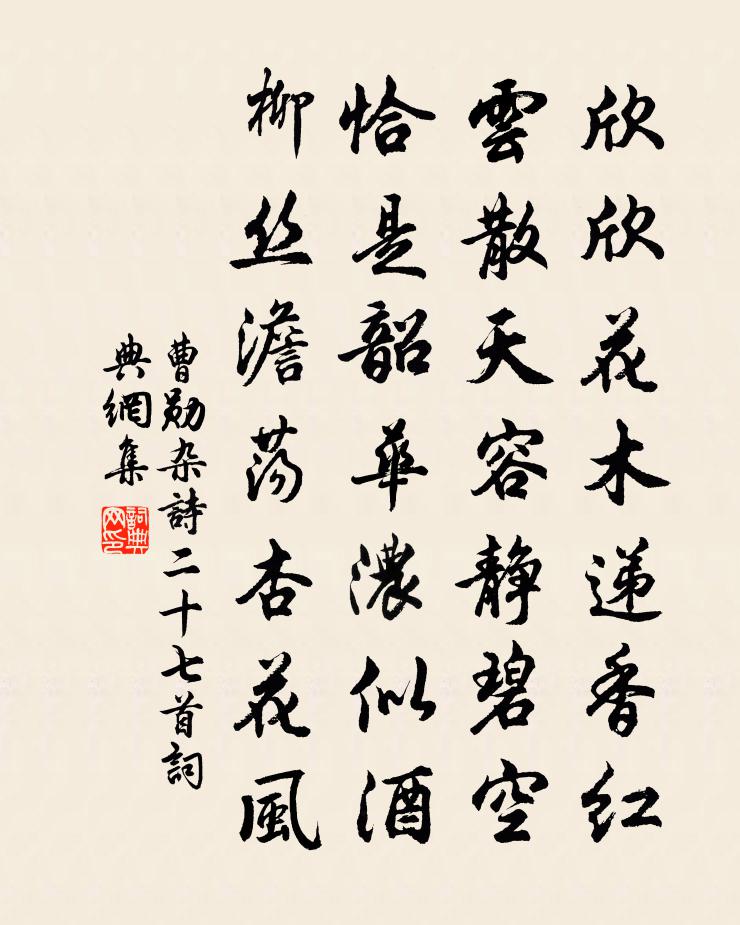 欣欣花木递香红
雲散天容静碧空
恰是韶華濃似酒
柳丝澹荡杏花風
曹勋杂詩二十七首詞
典網集
詞典
网印